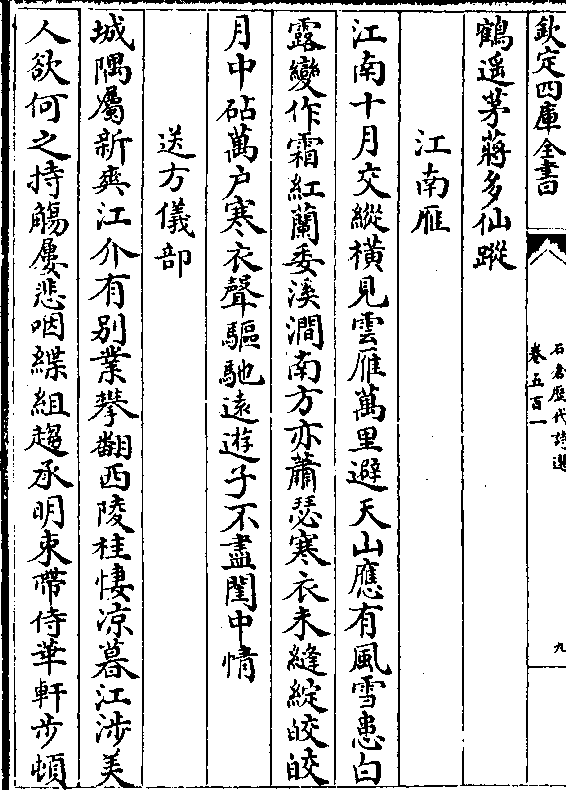 欽定四庫全書
石倉歷代詩選
卷五百一
九
鶴遥茅蔣多仙蹤
江南雁
江南十月交縱橫見雲雁萬里避天山應有風雪患白
露變作霜紅蘭委溪澗南方亦蕭瑟寒衣未縫綻皎皎
月中砧萬户寒衣聲驅馳遠遊子不盡閨中情
送方儀部
城隅屬新爽江介有别業攀翻西陵桂悽凉暮江涉美
人欲何之持觴屢悲咽緤組趨承明束帶侍華軒步頓